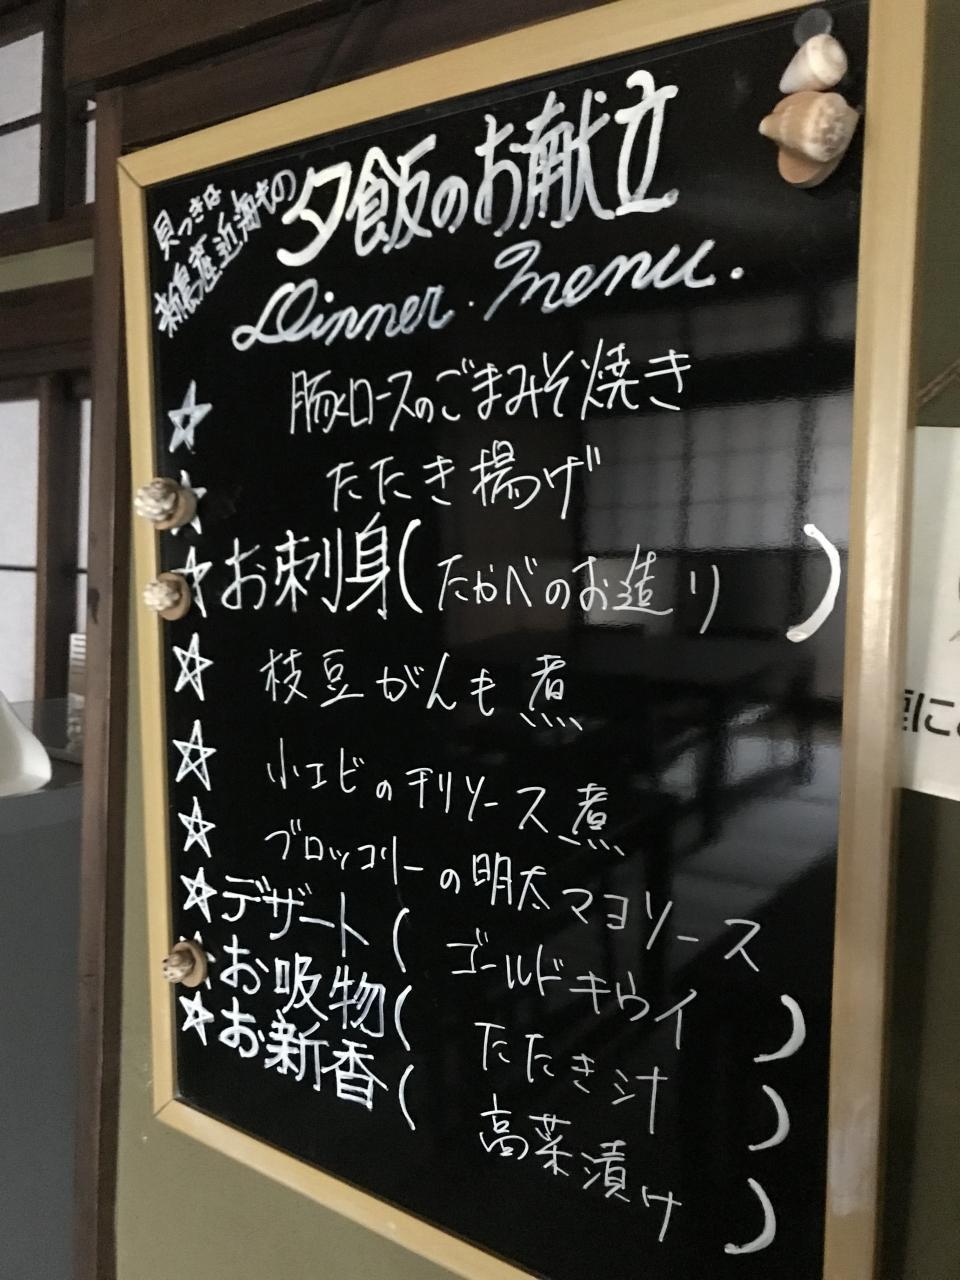 貝つきは
新島産近海もの
夕飯のお献立
Dinner. Menu.
☆ 豚ロースのごまみそ焼き
☆ たたき揚げ
☆ お刺身(たかべのお造り)
☆ 枝豆がんも煮
☆ 小エビのチリソース煮
☆ ブロッコリーの明太マヨソース
☆ デザート(ゴールドキウイ)
☆ お吸物(たたき汁)
☆ お新香(高菜漬け)